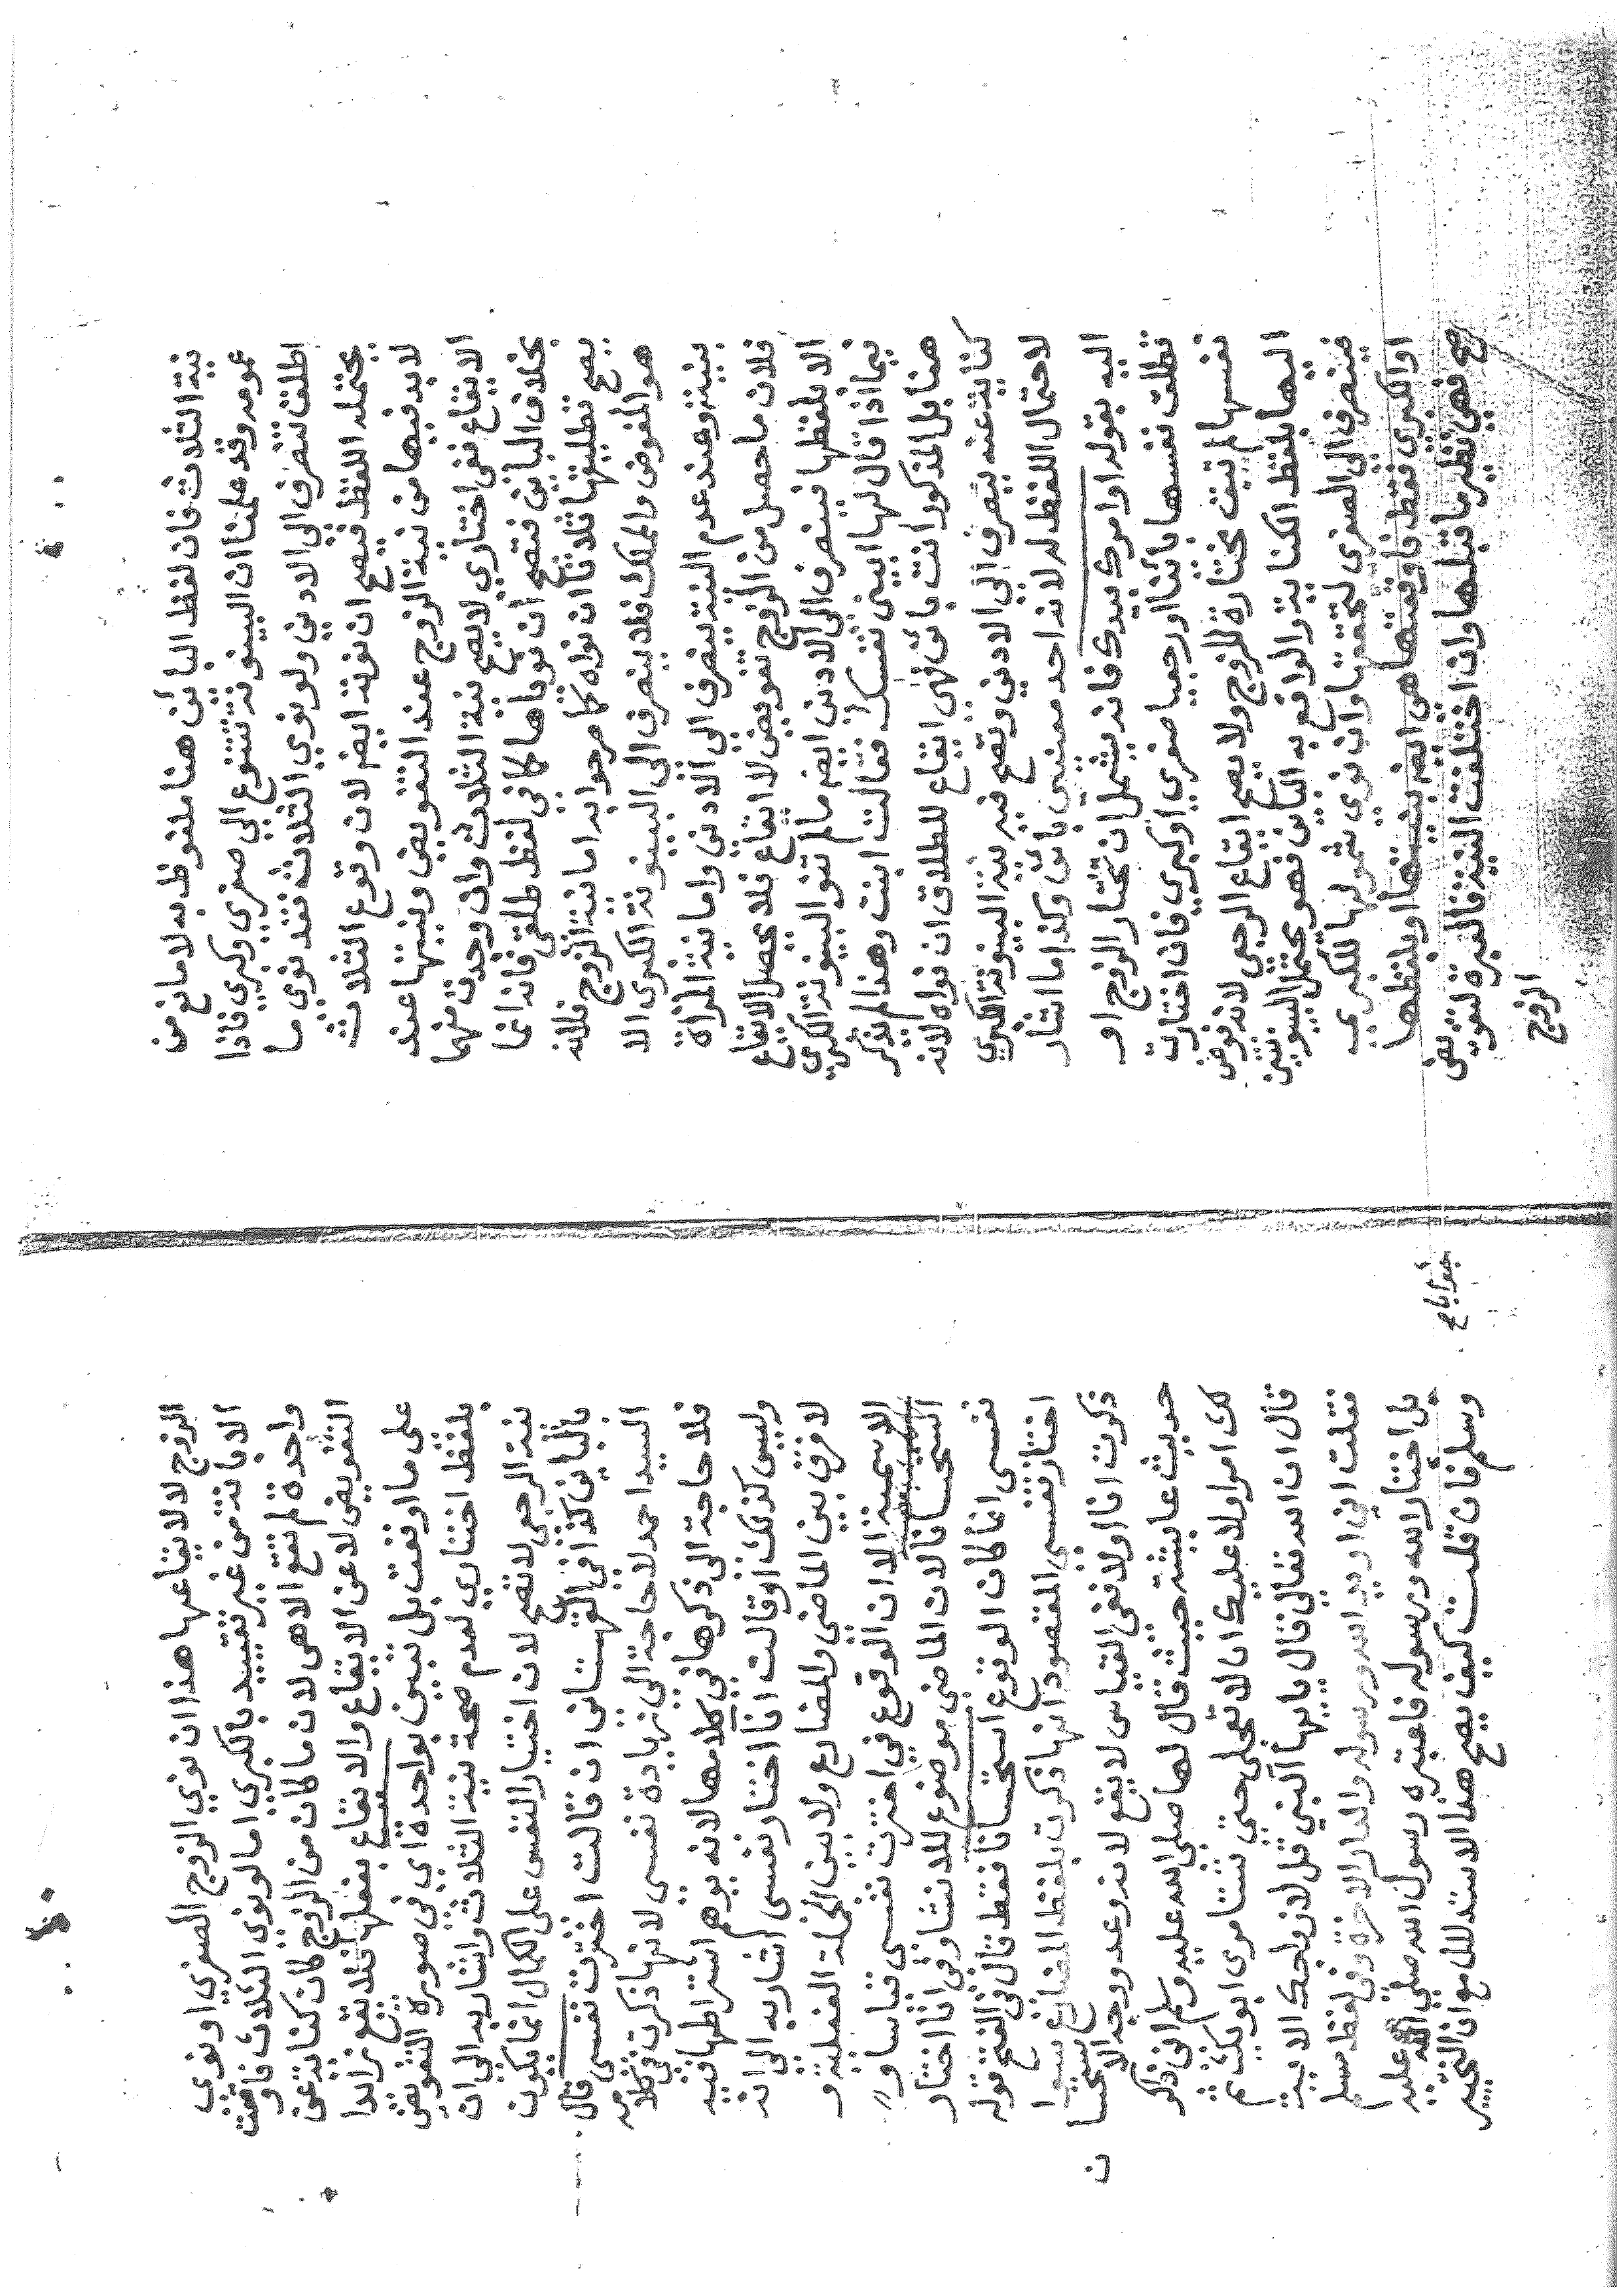 نية الثلاث فان لفظ البائن هنا ملفوظ به لا مانع من
عمومه وقد علمنا ان البينونة تتنوع الي صغري وكبري فاذا
اطلقت تنصرف الى الادني ولو نوي الثلاثة فقد نوى ما
يحتمله اللفظ فيصح ان نوته ايضا لان وقوع الثلاث
لابد فيها من نية الزوج عند التفويض ونيتها عند
الايقاع ففى اختاري لا يصح نية الثلاث وان وجدت منهما
بخلاف البائن فتصح ان نوياها كما في لفظ طلقي فانه انما
يصح تطليقها ثلاثا ان نواه كما مر جوابه اما نية الزوج فلانه
هو المفوض والمملك فلا ينصرف الى البينونة الكبرى الا
بنيته وعند عدم النية ينصرف الي الادنى واما نية المرأة
فلان ما حصل من الزوج تفويض لا ايقاع فلا يحصل الايقاع
الا بلفظها فينصرف الى الادنى ايضا ما لم تنو البينونة الكبري
فيما اذا قال لها ابيني نفسك فقالت ابنت وهذا لم يذكر
هنا بل المذكور انت بائن فهى ايقاع للطلاق ان نواه لانه
كناية عنه ينصرف الي الادنى وتصح فيه نية البينونة الكبري
لاحتمال اللفظ له لانه احد معنيي بائن وكذا ما اشار
اليه بقوله او امرك بيدك فانه يشمل ان تختار الزوج او
تطلق نفسها بائنا او رجعيا صغري او كبري فان اختارت
نفسها لم تبق مختارة للزوج ولا يصح ايقاع الرجعي لانه فوض
اليها بلفظ الكناية والواقع به البائن فهو يحتمل البينونتين
فينصرف الى الصغرى لتحققها وان نوي شمولها للكبري
او الكبرى فقط فاوقعتها هى ايضا بنيتها او بلفظها
صح فهي نظير ما قبلها وان اختلفت النية فالعبرة لتفويض
الزوج
الزوج لا لايقاعها هذا ان نوي الزوج الصغري او نوى
الابانة من غير تقييد بالكبرى اما لو نوى الثلاث فاوقعت
واحدة لم تقع الا هى لان ما كان من الزوج كان كناية عن
التفويض لا عن الايقاع والايقاع بفعلها فلا يقع زائدا
على ما اوقعت بل تبين بواحدة اي في صورة التفويض
بلفظ اختاري لعدم صحة نية الثلاث واشار به الى ان
نية الرجعي لا تصح لان اختيار النفس على الكمال انما يكون
بالبائن كذا في القهستاني ان قالت اخترت نفسى قال
السيد احمد لا حاجة الى زيادة نفسى لانها ذكرت في كلامه
فلا حاجة الى ذكرها في كلامها لانه يوهم اشتراطها فيه
وليس كذلك او قالت انا اختار نفسى اشار به الى انه
لا فرق بين الماضى والمضارع ولا بين الجملة الفعلية و
الاسمية الا ان الوقوع في اخترت نفسى قياسا و
استحسانا لان الماضى موضوع للانشا وفى انا اختار
نفسى انما كان الوقوع استحسانا فقط قال فى الفتح قوله
اختار نفسى المقصود انها ذكرت بلفظ المضارع سوا
ذكرت انا اولا ففى القياس لا يقع لانه وعد ووجه الاستحسان
حديث عايشة حيث قال لها صلى الله عليه وسلم انى ذاكر
لك امرا ولا عليك ان لا تعجلى حتى تستامرى ابويك ثم
قال ان الله تعالى قال يايها النبي قل لازواجك الاية
فقلت اني اريد الله ورسوله والدار الاخرة وفى لفظ مسلم
بل اختار الله ورسوله فاعتبره رسول الله صلى الله عليه
وسلم فان قلت كيف يصح هذا الاستدلال مع ان التخيير